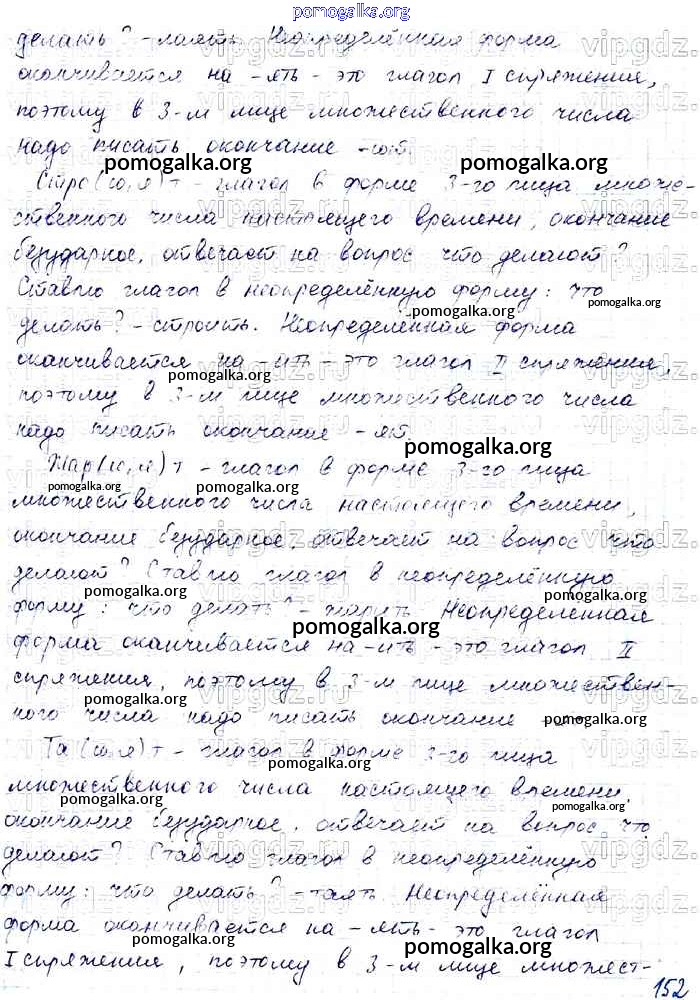 pomogalka.org
делать? - лаять. Неопределённая форма
оканчивается на -ять - это глагол I спряжения,
поэтому в 3-м лице множественного числа
надо писать окончание -ют.
Стро(ю,я)т - глагол в форме 3-го лица множе-
ственного числа настоящего времени, окончание
безударное, отвечает на вопрос что делают?
Ставлю глагол в неопределённую форму: что
делать? - строить. Неопределённая форма
оканчивается на -ить - это глагол II спряжения,
поэтому в 3-м лице множественного числа
надо писать окончание -ят.
Жар(ю,я)т - глагол в форме 3-го лица
множественного числа настоящего времени,
окончание безударное, отвечает на вопрос что
делают? Ставлю глагол в неопределённую
форму: что делать? - жарить. Неопределенная
форма оканчивается на -ить - это глагол II
спряжения, поэтому в 3-м лице множествен-
ного числа надо писать окончание
Та(ю,я)т - глагол в форме 3-го лица
множественного числа настоящего времени,
окончание безударное, отвечает на вопрос что
делают? Ставлю глагол в неопределённую
форму: что делать? - таять. Неопределённая
форма оканчивается на -ять - это глагол
I спряжения, поэтому в 3-м лице множест-
152